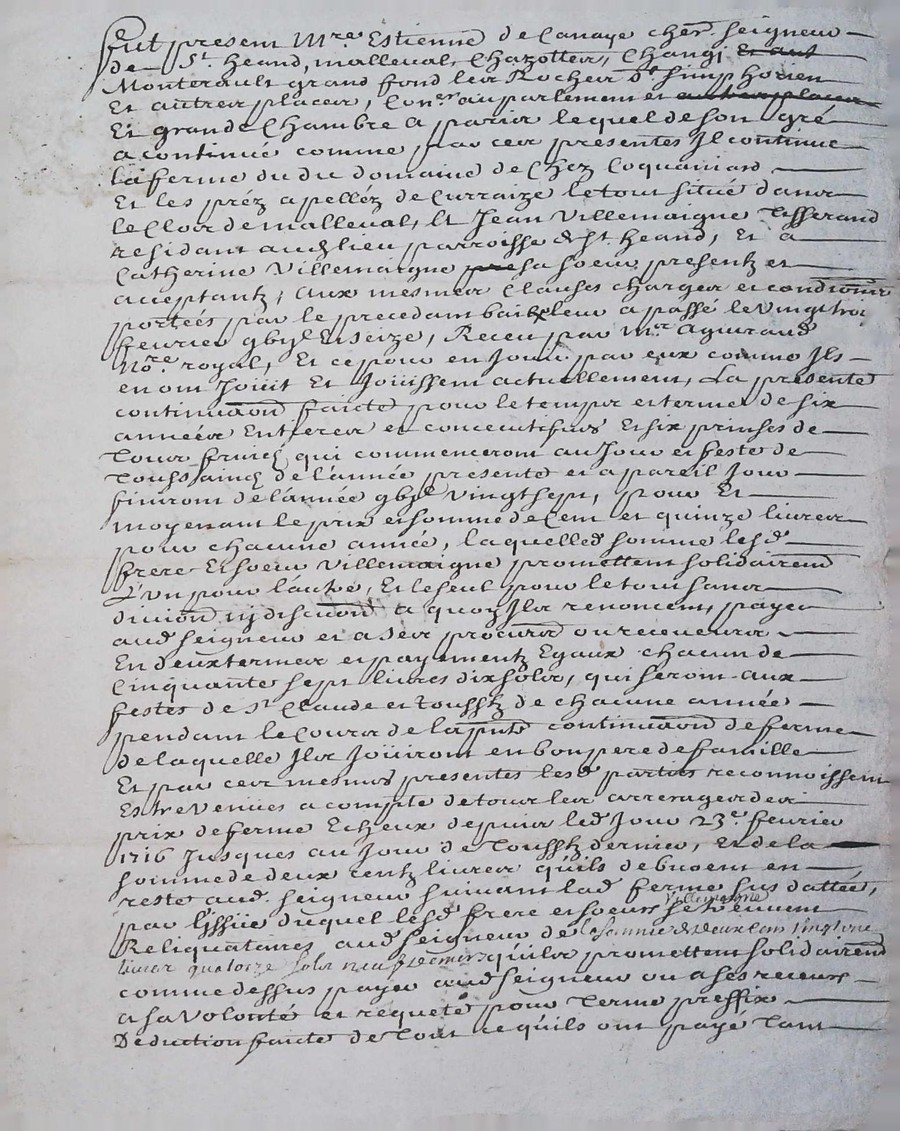 Fut present Mre Estienne de Canaye cher seigneur
de St heand, malleval, Chazottes, Changi Et aut
Monterault grand fond les Rocher St simphorien
Et autres places, Conser au parlement et autres places
Et grande Chambre a paris lequel de son gré
a continué comme par ces presentes Il continue
la ferme du du domaine de Chez Coquaniard
Et les préz apelléz de Curraize le tout situé dans
le Clos de malleval, A Jean Villemaigne Tisserand
residant audt lieu parroisse de St heand, Et a
Catherine Villemaigne sa soeur presentz et
acceptantz, aux mesmes Clauses charges et conditions
portées par le precedant bail leur a passé le vingt trois
febvrier gbijc Et seize, Receu par Mre Aguiraud
Nore royal, Et ce pour en Jouir par eux comme Ils
en ont Joüit Et Joüissent actuellement, La presente
continuaon faicte pour le temps et terme de six
années Entieres et consecutifves Et six prinses de
Tous fruicts qui commenceront au Jour et feste de
Toussainctz de l'année presente et a pareil Jour
finiront de l'année gbijc vingt sept, pour Et
moyenant le prix et somme de Cent et quinze livres
pour chacune année, laquelle somme lesd
frere Et soeur Villemaigne promettent solidairemt
L'un pour l'autre, Et le seul pour le tout sans
division ny discution a quoy Ils renoncent, payer
aud seigneur et a ses procurrs ou receveurs
En deux termes et payementz Egaux chacun de
Cinquante sept livres dix sols, qui seront aux
festes de St Claude et Tousstz de chacune année
pendant le Cours de la pnte continuaon de ferme
de laquelle Ils Joüiront en bon pere de famille
Et par ces mesmes presentes lesd parties reconnoissent
Estre venues a compte de tous les arrerages des
prix de ferme Echeus depuis led Jour 23e febvrier
1716 Jusques au Jour de Toussts dernier, Et de la
somme de deux centz livres qu'ils debvoent en
reste aud. seigneur suivant lad ferme sus dattée,
par l'issüe duquel lesd frere et soeur Villemaigne se treuvent
Reliquataires aud seigneur de la somme de deux cens vingt une
livres quatorze sols neuf deniers qu'ils promettent solidairemt
comme dessus payer aud seigneur ou a ses receurs
a sa volonté et requete pour Terme preffix
Déduction faicte de Tout ce qu'ils ont payé Tant